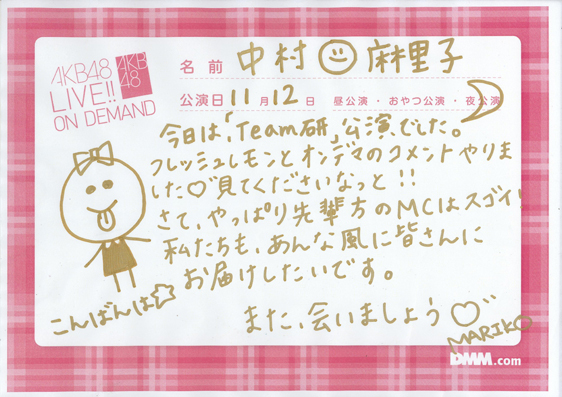 AKB48
LIVE!!
ON DEMAND
AKB
48
名前 中村 麻里子
公演日 11月12日 昼公演・おやつ公演・夜公演
今日は、「Team研」公演でした。
フレッシュレモンとオンデマのコメントやりま
した♡見てくださいなっと!!
さて、やっぱり先輩方のMCはスゴイ!
私たちも、あんな風に皆さんに
お届けしたいです。
こんばんは☆
また、会いましょう♡
MARIKO
DMM.com